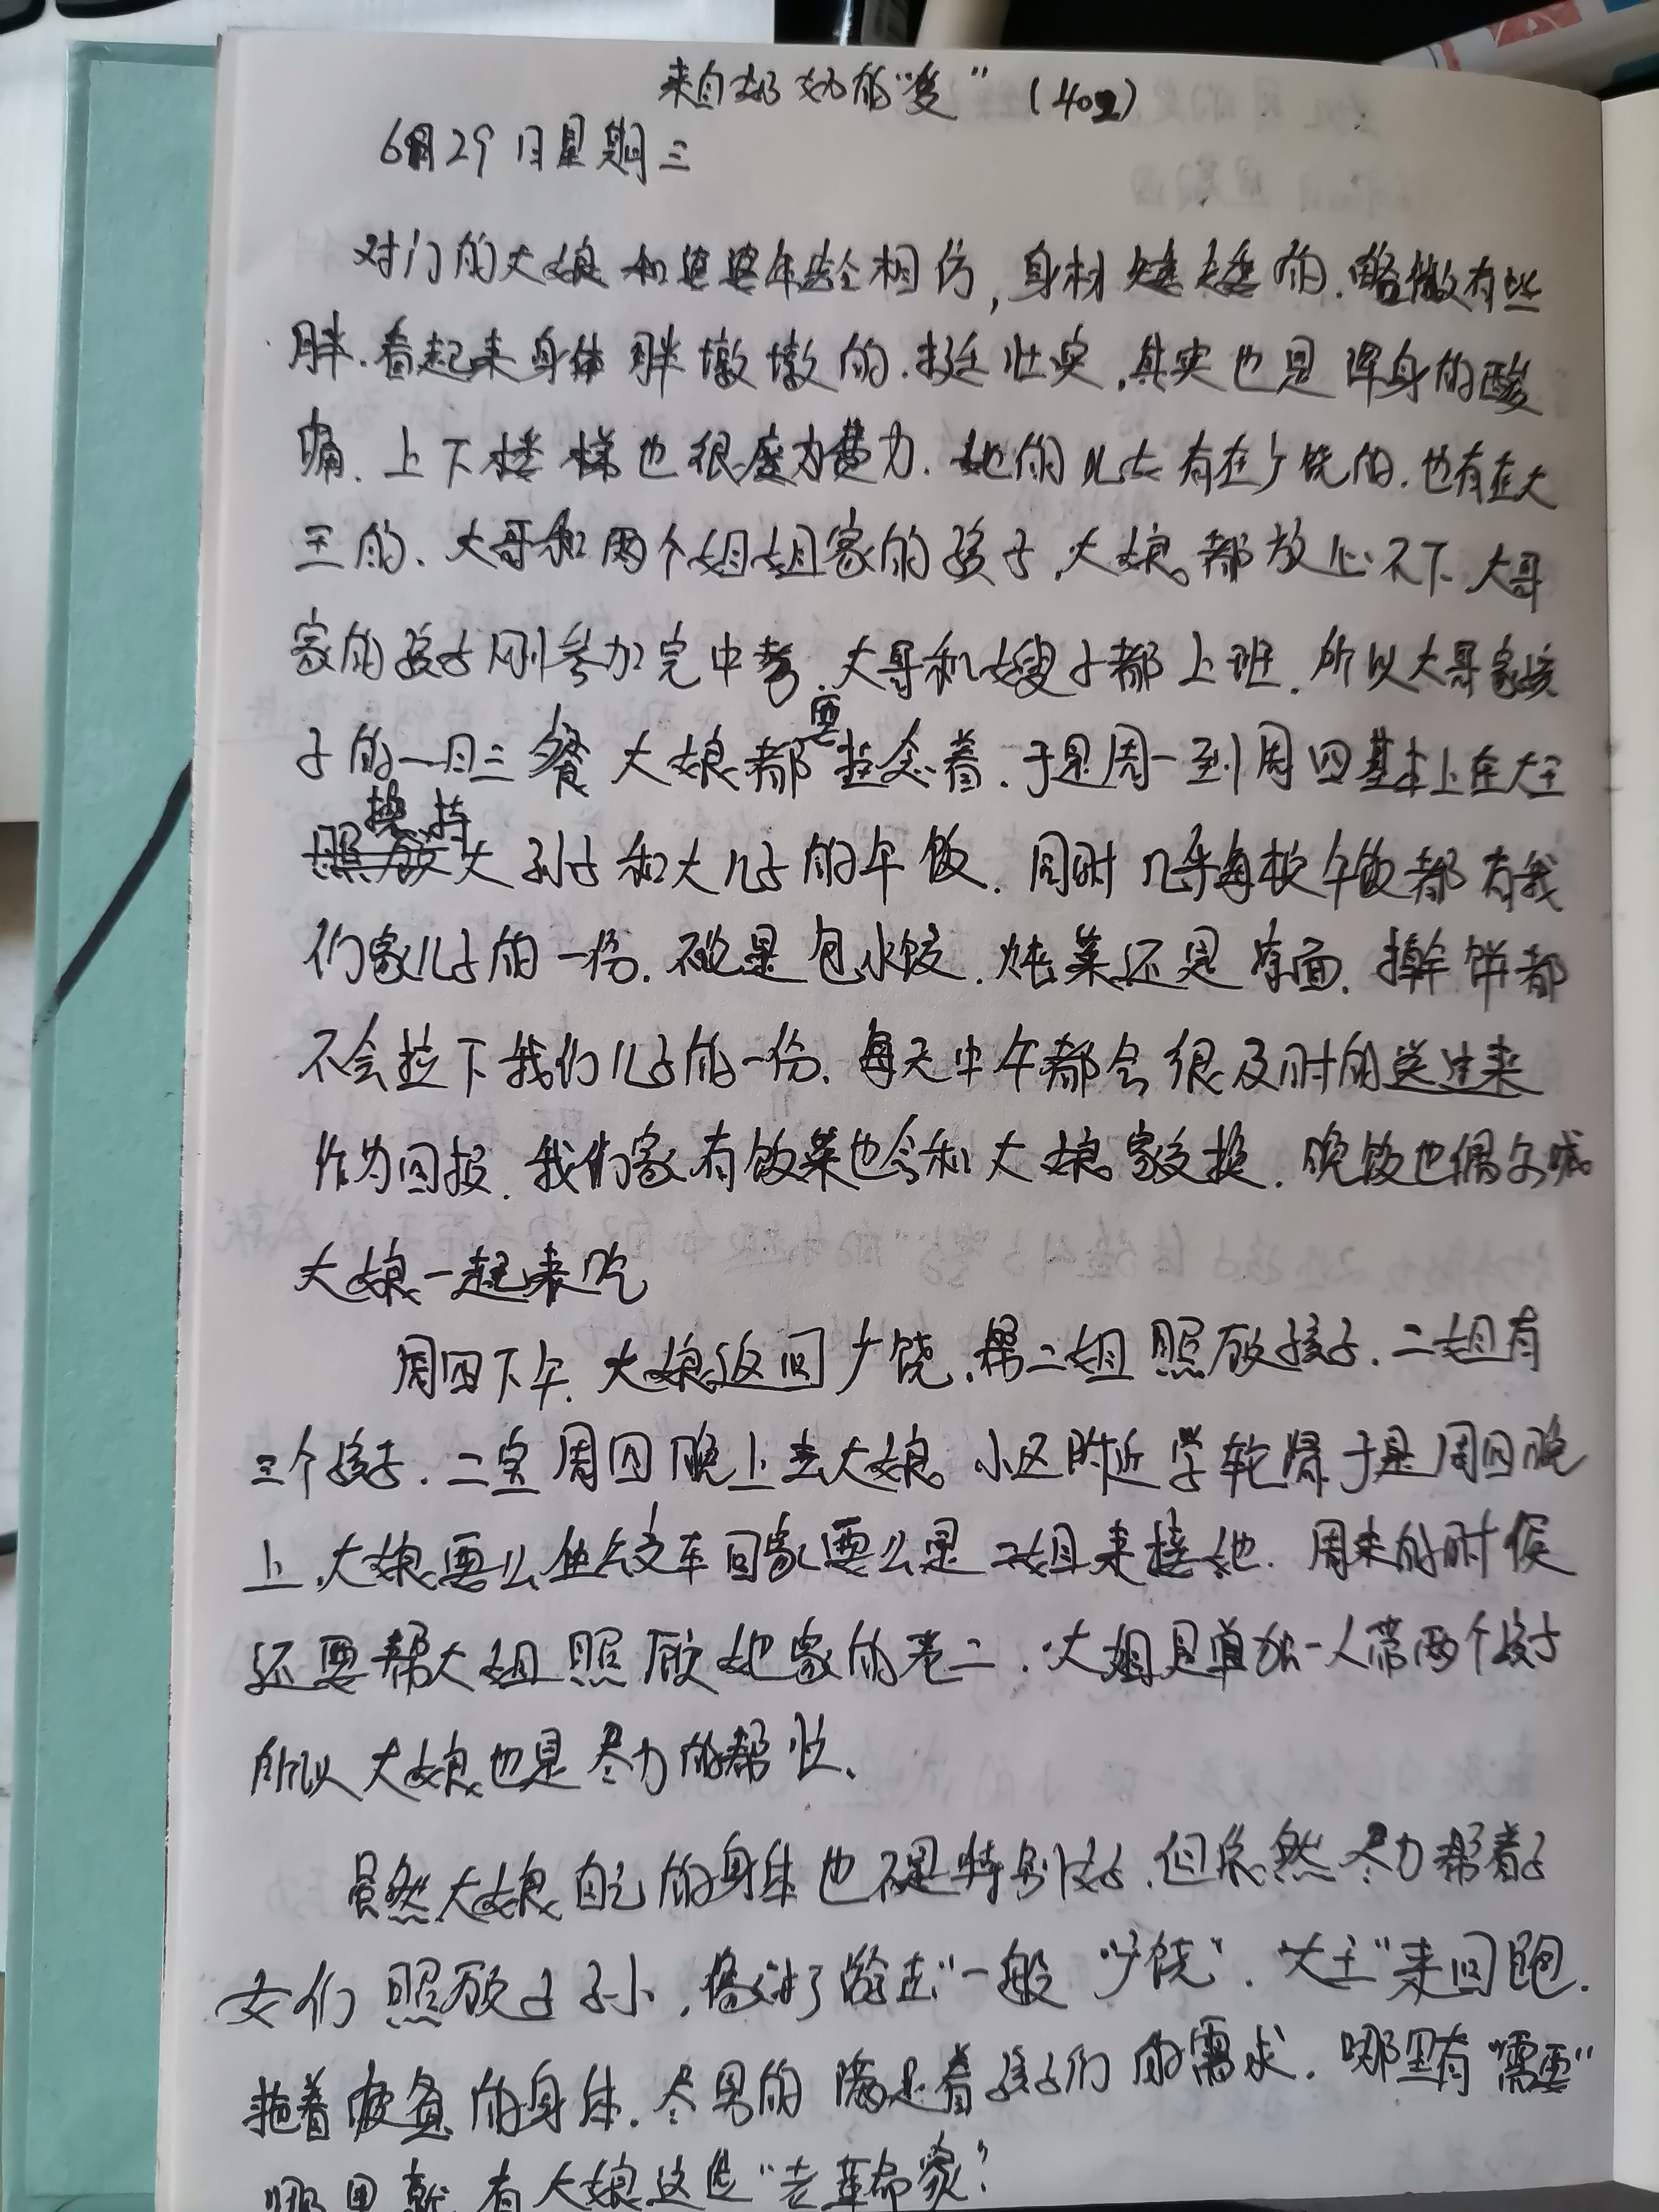 来自奶奶的“爱”(402)
6月29日星期三
对门的大娘和婆婆年龄相仿,身材矮矮的.略微有些
胖.看起来身体胖墩墩的.挺壮实.其实也是浑身的酸
痛.上下楼梯也很废力费力.她的儿女有在广饶的.也有在大
王的.大哥和两个姐姐家的孩子.大娘都放心不下.大哥
家的孩子刚参加完中考.大哥和嫂子都上班.所以大哥家孩
子的一日三餐大娘都要挂念着.于是周一到周四基本上在大王
操持大孙子和大儿子的午饭.同时几乎每顿午饭都有我
们家儿子的一份.不论是包水饺.炖菜还是凉面.擀饼都
不会拉下我们儿子的一份.每天中午都会很及时的送过来
作为回报.我们家有饭菜也会和大娘家交换.晚饭也偶尔喊
大娘一起来吃
周四下午.大娘返回广饶.帮二姐照顾孩子.二姐有
三个孩子.二宝周四晚上去大娘小区附近学轮滑于是周四晚
上.大娘要么坐公交车回家要么是二姐来接她.周末的时候
还要帮大姐照顾她家的老二.大姐是单加一人带两个孩子
所以大娘也是尽力的帮忙.
虽然大娘自己的身体也不是特别好.但依然尽力帮着子
女们照顾子孙.像“打游击”一般“广饶”.“大王”来回跑.
拖着疲惫的身体.尽男的满足着孩子们的需求.哪里有“需要”
哪里就有大娘这位“老革命家”